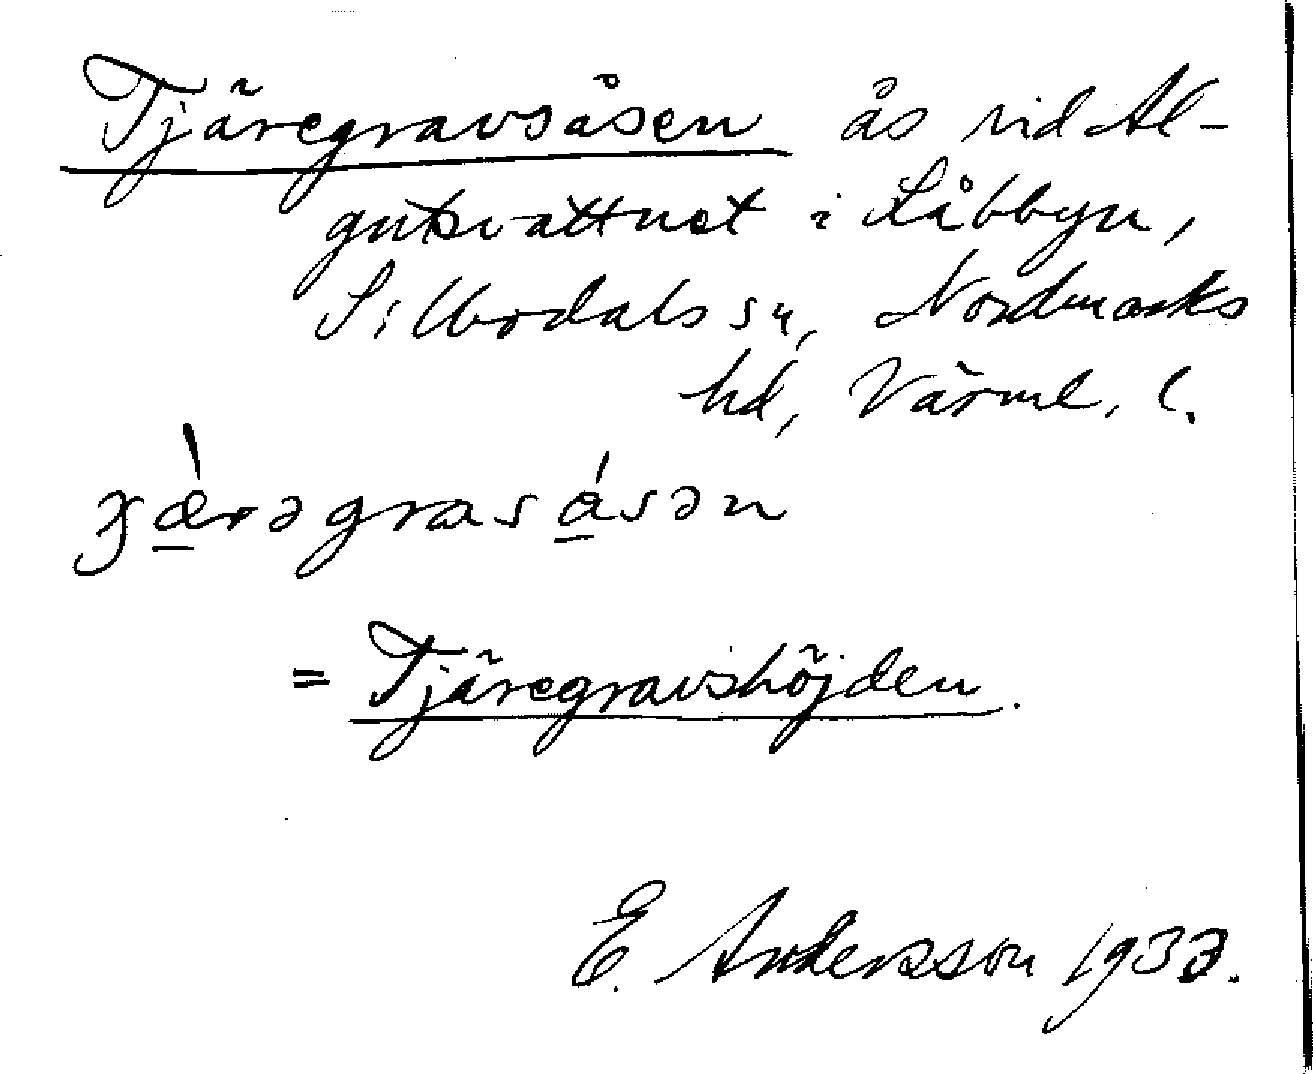 Tjäregravsåsen ås vid Al-
gutsvattnet i Låbbyn,
Silbodals sn, Nordmarks
hd, Värml. l.
= Tjäregravshöjden.
E. Andersson